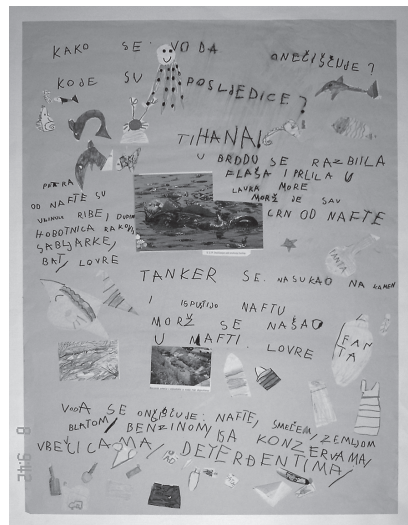 KAKO SE VODA ONEČIŠĆUJE?
KOJE SU POSLJEDICE?
TIHANA
U BRODU SE RAZBILA
FLAŠA I PRLILA U
LAURA MORE
MORŽ JE SAV
CRN OD NAFTE
PETRA
OD NAFTE SU
UGINULE RIBE,
HOBOTNICA RAKOVI
SABLJARKE,
BAT, LOVRE
TANKER SE NASUKAO NA KAMEN
I ISPUSTIJO NAFTU
MORŽ SE NAŠAO
U NAFTI. LOVRE
FANTA
FAN
TA
VODA SE ONEČIŠĆUJE: NAFTE, SMEĆEM, ZEMLJOM
BLATOM, BENZINOM, SA KONZERVAMA,
VREĆICAMA, DETERĐENTIMA,
8 9:42